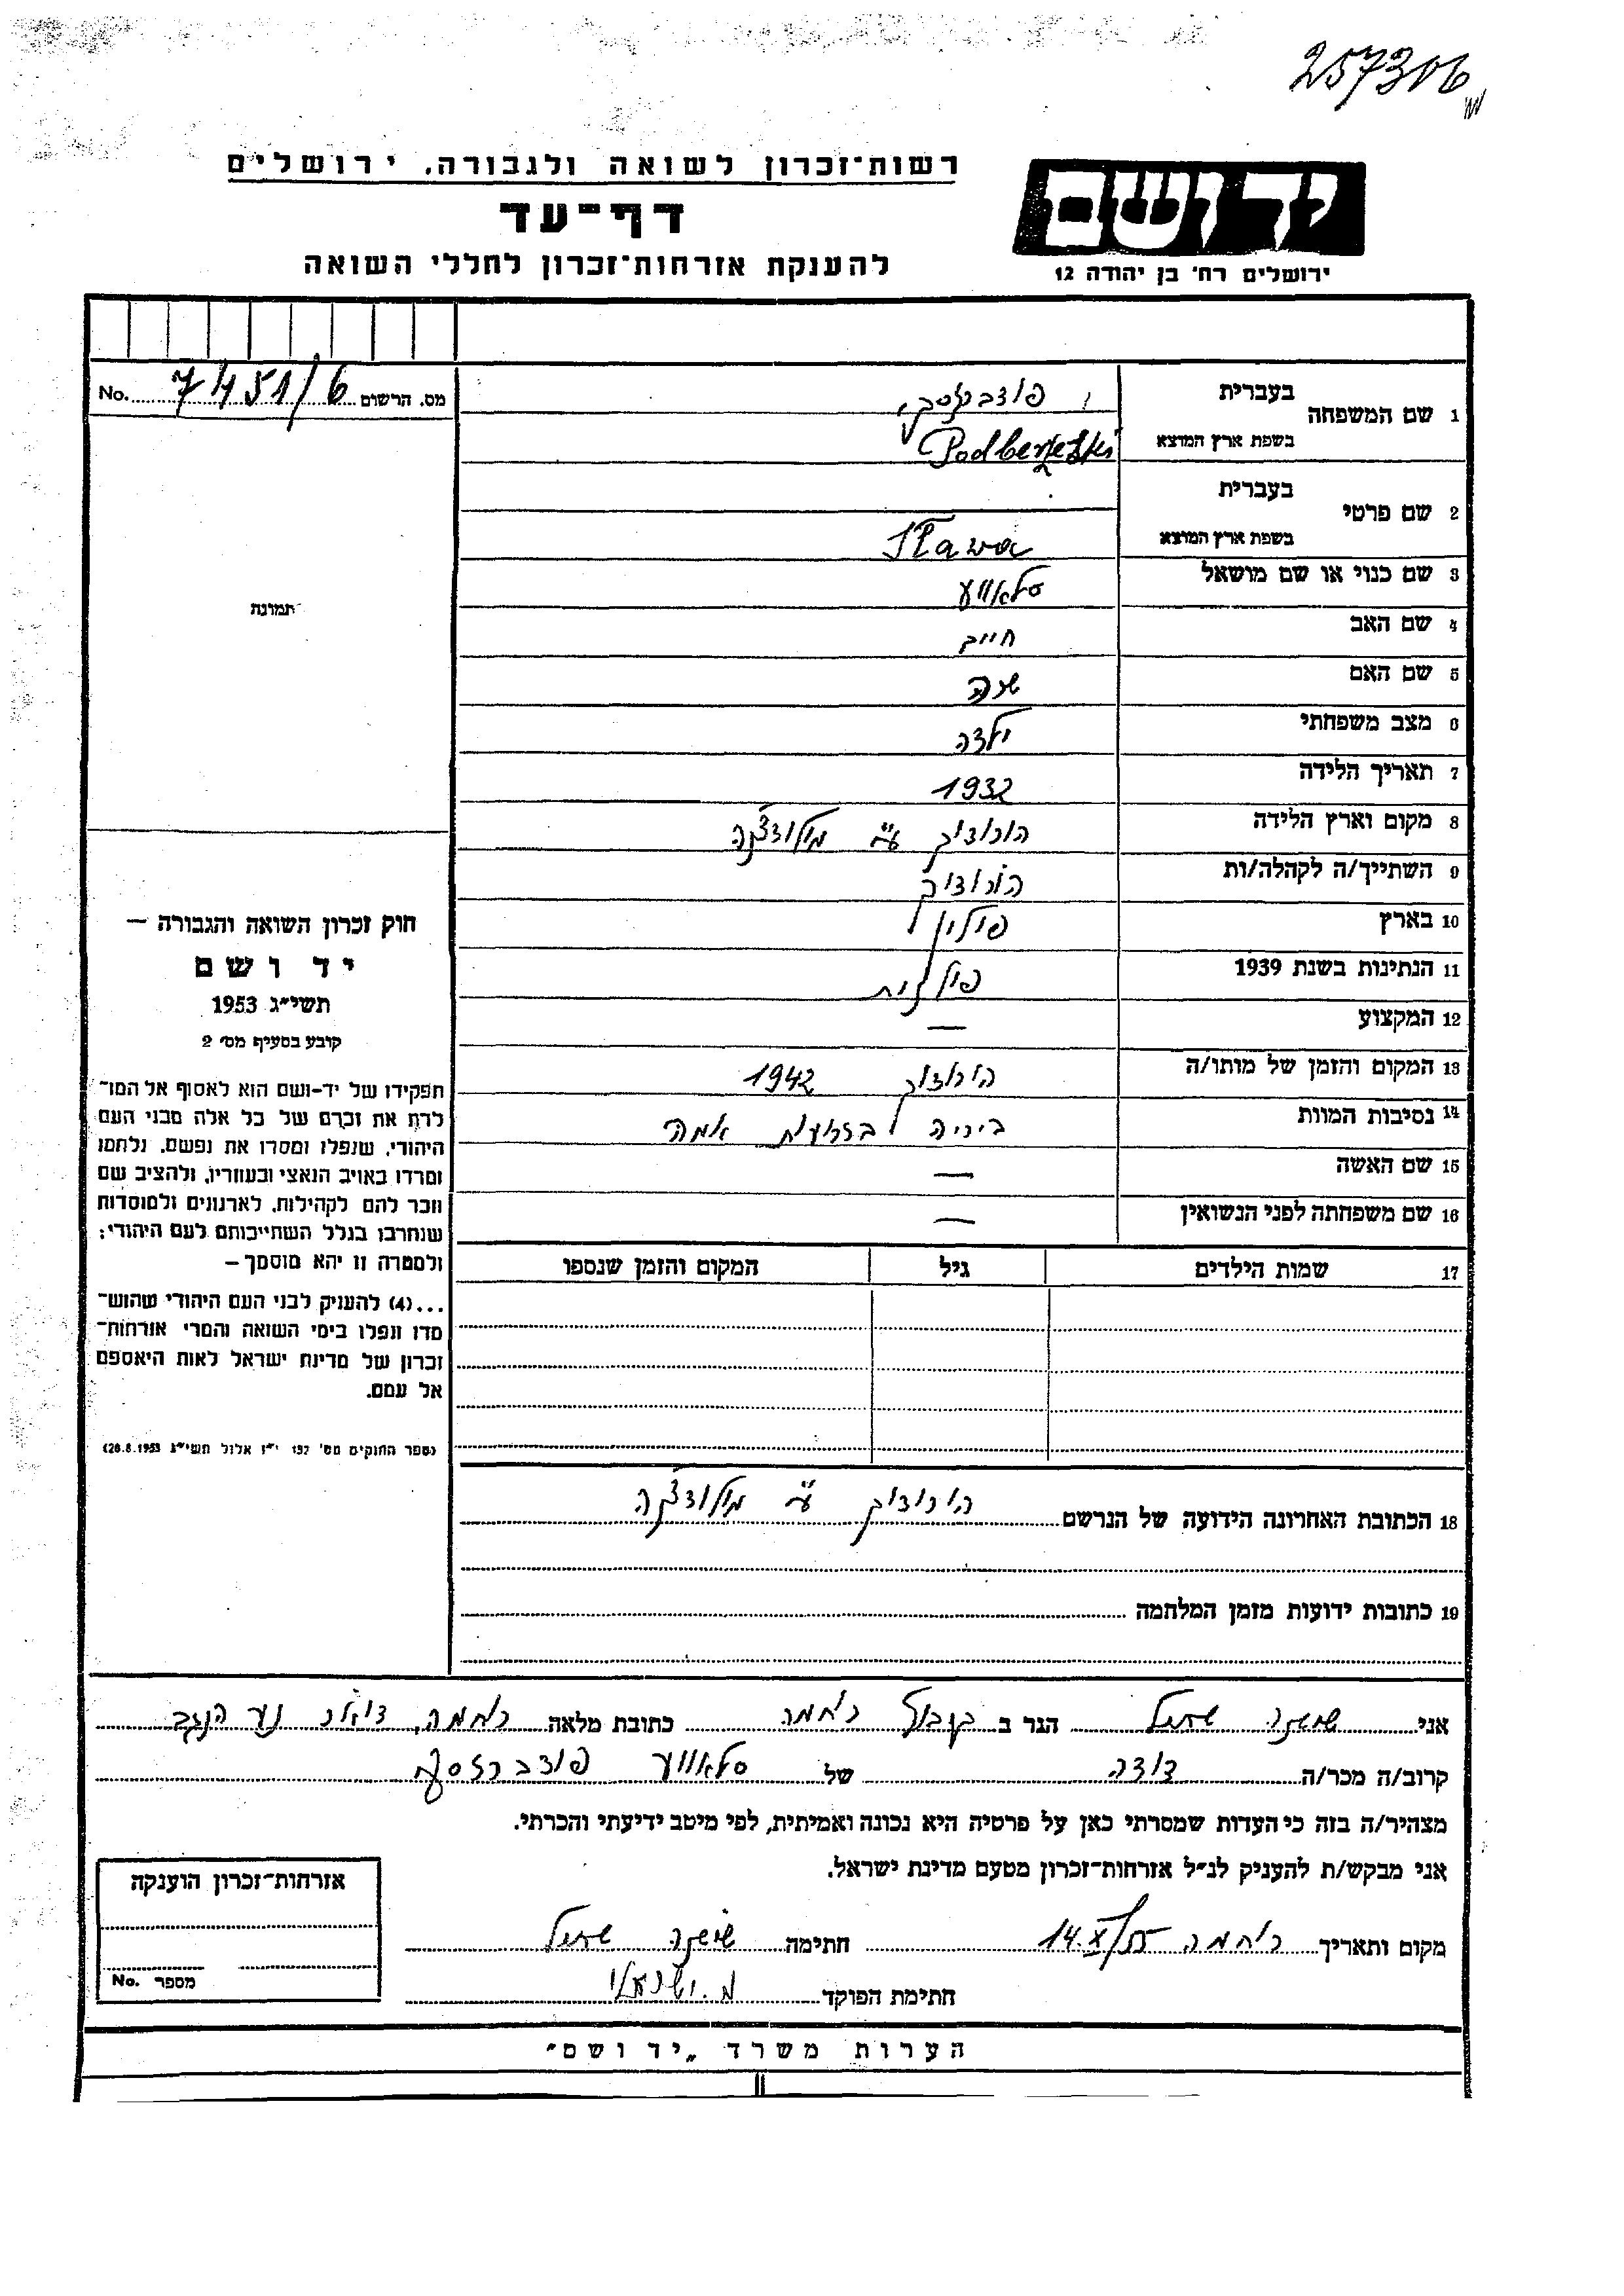 257306
רשות־זכרון לשואה ולגבורה, ירושלים
יד ושם
דף־עד
להענקת אזרחות־זכרון לחללי השואה
ירושלים רח' בן יהודה 12
מס. הרשום 7451/6 No.
1 שם המשפחה
בעברית פודברזסקי
בשפת ארץ המוצא Podberzeski
2 שם פרטי
בעברית
בשפת ארץ המוצא Sława
3 שם כנוי או שם מושאל סלאווע
4 שם האב חייב
5 שם האם שרה
6 מצב משפחתי ילדה
7 תאריך הלידה 1932
8 מקום וארץ הלידה הורודוק ע"י מולודצ'קה
9 השתייך/ה לקהלה/ות הורודוק
10 בארץ פולין
11 הנתינות בשנת 1939 פולנית
12 המקצוע —
13 המקום והזמן של מותו/ה הורודוק 1942
14 נסיבות המוות ביריה בזרועות אמה
15 שם האשה —
16 שם משפחתה לפני הנשואין —
17 שמות הילדים גיל המקום והזמן שנספו
18 הכתובת האחרונה הידועה של הנרשם הורודוק ע"י מולודצ'קה
19 כתובות ידועות מזמן המלחמה
תמונה
חוק זכרון השואה והגבורה —
יד ושם
תשי"ג 1953
קובע בסעיף מס' 2
תפקידו של יד-ושם הוא לאסוף אל המו־
לדת את זכרם של כל אלה מבני העם
היהודי, שנפלו ומסרו את נפשם, נלחמו
ומרדו באויב הנאצי ובעוזריו, ולהציב שם
וזכר להם לקהילות, לארגונים ולמוסדות
שנחרבו בגלל השתייכותם לעם היהודי;
ולמטרה זו יהא מוסמך —
...(4) להעניק לבני העם היהודי שהוש־
מדו ונפלו בימי השואה והמרי אזרחות־
זכרון של מדינת ישראל לאות היאספם
אל עמם.
(ספר החוקים מס' 132 י"ז אלול תשי"ג 28.8.1953)
אני שושנה הגר ב קבוץ רוחמה כתובת מלאה רוחמה, דואר נע הנגב
קרוב/ה מכר/ה דודה של סלאווע פודברזסקי
מצהיר/ה בזה כי העדות שמסרתי כאן על פרטיה היא נכונה ואמיתית, לפי מיטב ידיעתי והכרתי.
אני מבקש/ת להעניק לנ"ל אזרחות־זכרון מטעם מדינת ישראל.
מקום ותאריך רוחמה 14.X/55 חתימה שושנה
חתימת הפוקד
אזרחות־זכרון הוענקה
מספר No.
הערות משרד „יד ושם"